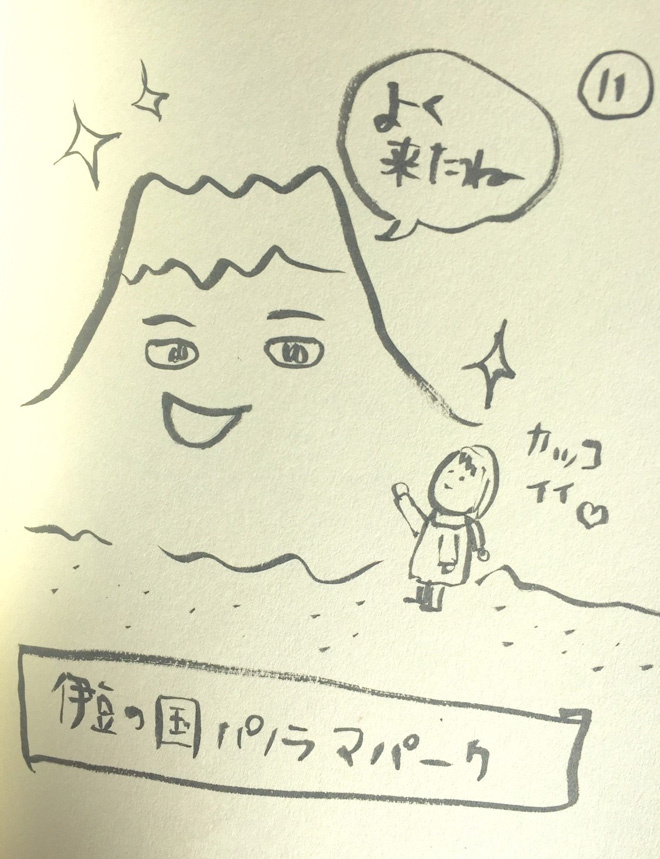 11
よく
来たね
カッコ
イイ♡
伊豆の国パノラマパーク